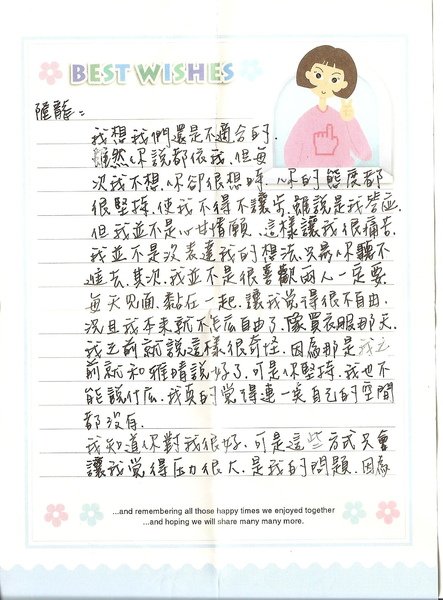 BEST WISHES
龍：
我想我們還是不適合的.
雖然你說都依我, 但每
次我不想, 你卻很想時, 你的態度都
很堅持, 使我不得不讓步, 雖說是我答應,
但我並不是心甘情願, 這樣讓我很痛苦.
我並不是沒表達我的想法, 只是你聽不
進去, 其次, 我並不是很喜歡兩人一定要
每天見面, 黏在一起, 讓我覚得很不自由,
況且我本來就不怎広自由了, 像買衣服那天.
我之前就說這樣很奇怪. 因為那是我之
前就和雅晴說好了, 可是你堅持, 我也不
能說什広, 我真的覚得連一點自己的空間
都沒有.
我知道你對我很好, 可是這些方式又會
讓我覚得压力很大, 是我的問題, 因為
...and remembering all those happy times we enjoyed together
...and hoping we will share many many more.